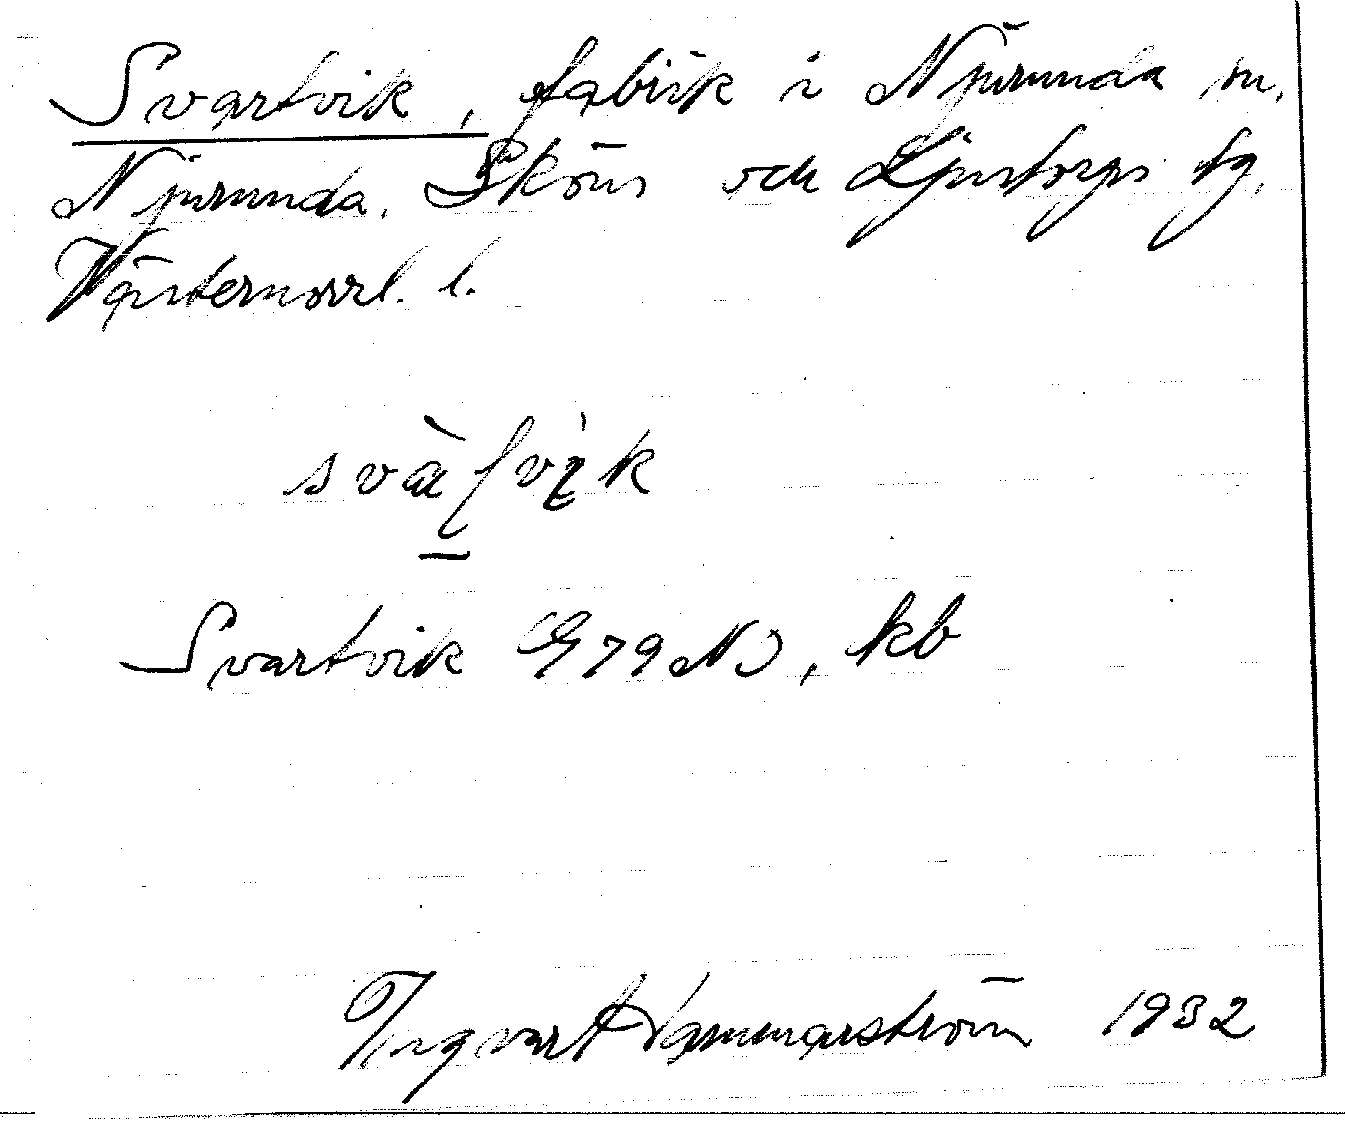 Svartvik, fabrik i Njurunda sn.
Njurunda, Sköns och Ljustorps tg,
Västernorrl. l.
Svartvik G 79 NJ, kb
Ingvart Hammarström 1932